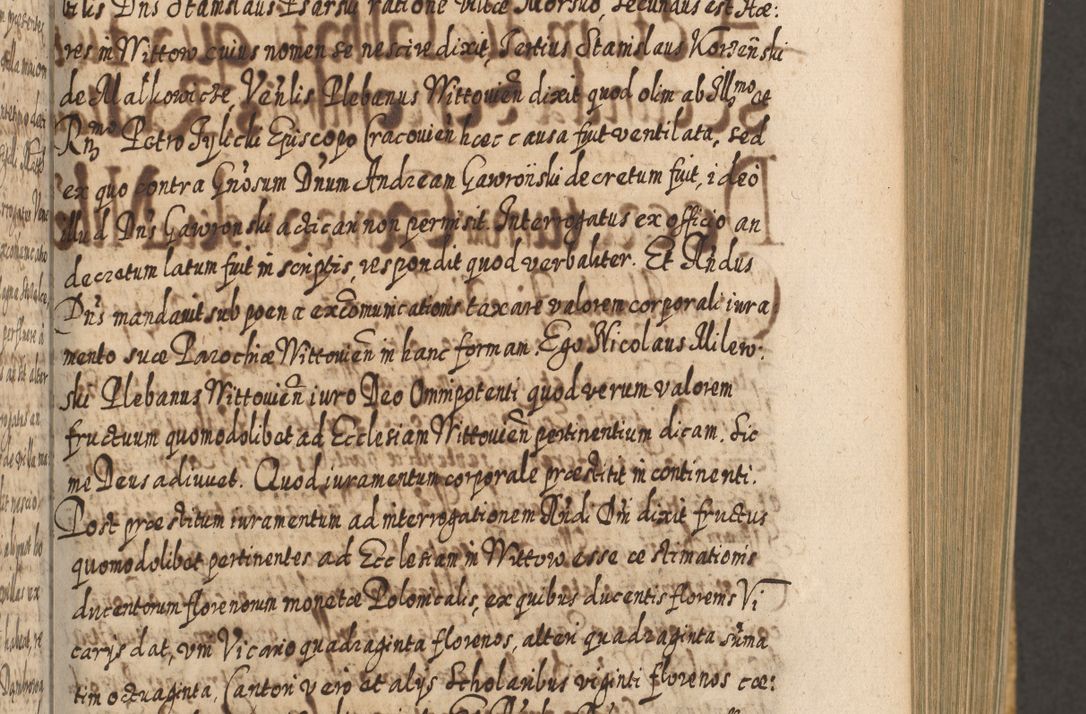 bilis Dns Stanislaus Psarski ratione villæ Morsko, Secundus est Hæ:
res in Wittow cuius nomen se nescire dixit, Tertius Stanislaus Korzeński
de Małkowicze, Venlis Plebanus Wittovien dixit quod olim ab Illmo et
Rmo Petro Tylicki Episcopo Cracovien hæc causa fuit ventilata, sed
ex quo contra Gnosum Dnum Andream Gawroński decretum fuit, ideo
illud Dns Gawronski acticari non permisit. Interrogatus ex officio an
decretum latum fuit in scriptis, respondit quod verbaliter. Et Rndus
Dns mandavit sub poena excomunicationis taxare valorem corporali iura
mento suæ Parochiæ Wittovien in hanc formam. Ego Nicolaus Milew:
ski Plebanus Wittovien iuro Deo Omnipotenti quod verum valorem
fructuum quomodolibet ad Ecclesiam Wittovien pertinentium dicam. Sic
me Deus adiuvet. Quod iuramentum corporale præstitit in continenti.
Post præstitum iuramentum ad interrogationem Rndi Dni dixit fructus
quomodolibet pertinentes ad Ecclesiam in Wittow esse æstimationis
ducentorum florenorum monetæ Polonicalis, ex quibus ducentis florenis Vi
carijs dat, uni Vicario quadraginta florenos, alteri quadraginta suma
tim octuaginta, Cantori vero et alijs Scholaribus viginti florenos cæ: